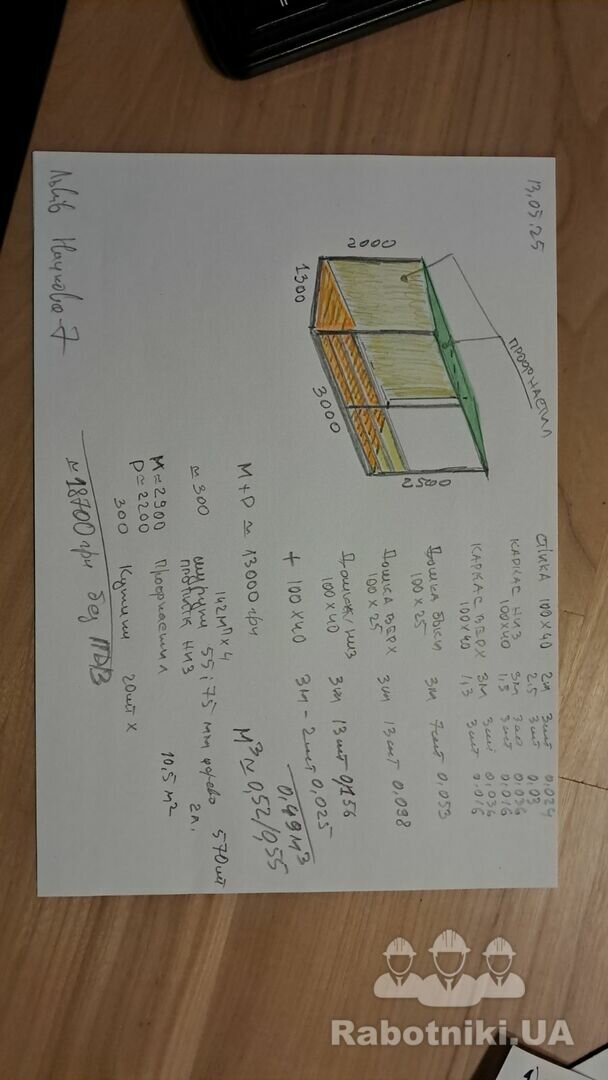 13.03.25
ПРОФНАСТИЛ
2000
1300
3000
2500
СТІЙКА 100х40 2м 3шт 0,024
2.5 3шт 0,03
КАРКАС НИЗ 3м 3шт 0,036
100х40 1,5 3шт 0,016
КАРКАС ВЕРХ 3м 3шт 0,036
100х40 1,3 3шт 0.016
Дошка боки 3м 7шт 0,053
100х25
Дошка ВЕРХ 3м 13шт 0,098
100х25
Дошка/низ 3м 13шт 0,156
100х40
+ 100х40 3м - 2шт 0,025
0,49м³
М+Р ≈ 13000 грн М³ ≈ 0,52/0,55
142мп х 4
≈ 300 шурупи 55 і 75 мм 570шт
подбити низ 2л.
М ≈ 2900 Профнастил 10.5 м²
Р ≈ 2200
300 Кутики 20шт х
≈ 18700 грн без ПДВ
Львів Наукова-7
Rabotniki.UA